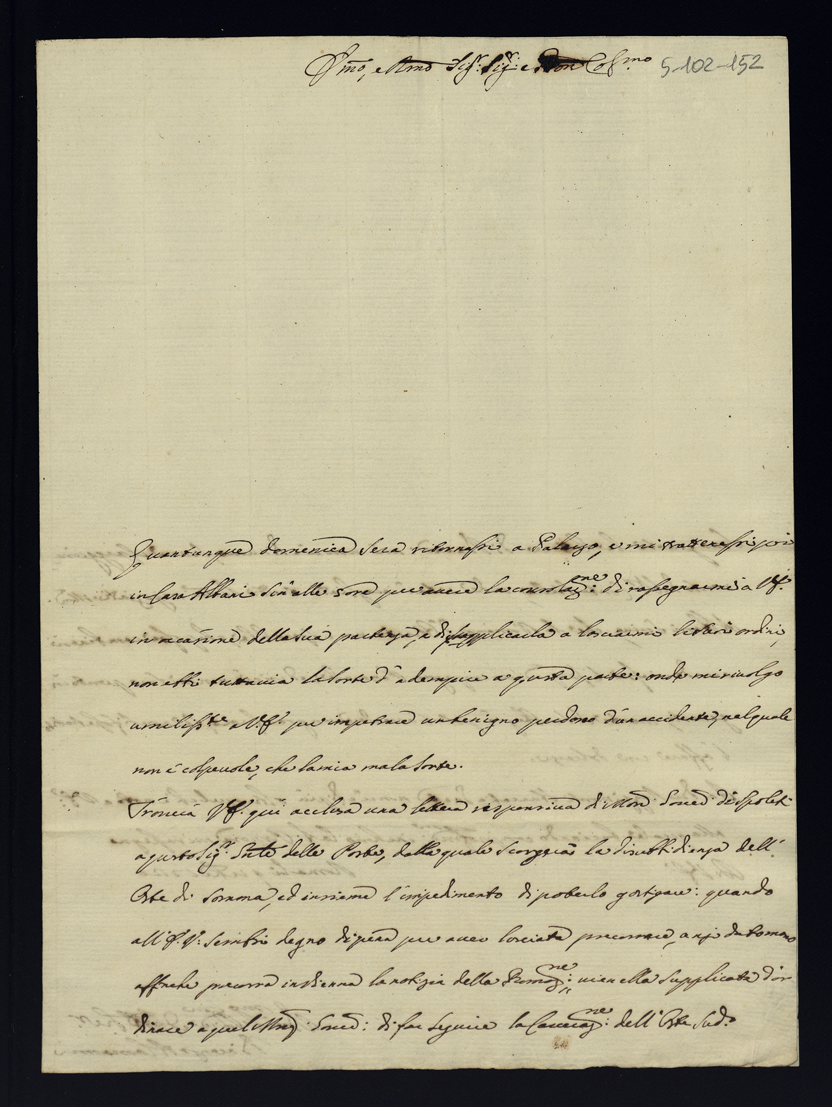 Illmo, e Rmo Sig.r Sig.r e Pron Colmo 5-102-152
Quantunque domenica sera ritornassi a Palazzo, e mi trattenessi poi
in Casa Albani sin alle 5 ore per avere la consolaz.ne di rassegnarmi a V.S.
in occasione della sua partenza, e di supplicarla a lasciarmi li suoi ordini,
non ebbi tuttavia la sorte d'adempire a questa parte: onde mi rivolgo
umilisste a V.S. per impetrare un benigno perdono d'un accidente, nel quale
non è colpevole, che la mia mala sorte.
Troverà V.S. qui acclusa una lettera responsiva di Mon. Gover. di Spoleti
a questo Sig.r delle Poste, dalla quale scorgerà la disubbidienza dell'
Oste di Somma, ed insieme l'impedimento di poterlo gastigare: quando
all' V. sembri degno di pena per aver lasciato precorrere, anzi dato mano
affinche precorra in Vienna la notizia della Promoz.ne: vien ella supplicata d'or
dinare a quel Gover: di far seguire la Carceraz.ne: dell'Oste sud.o